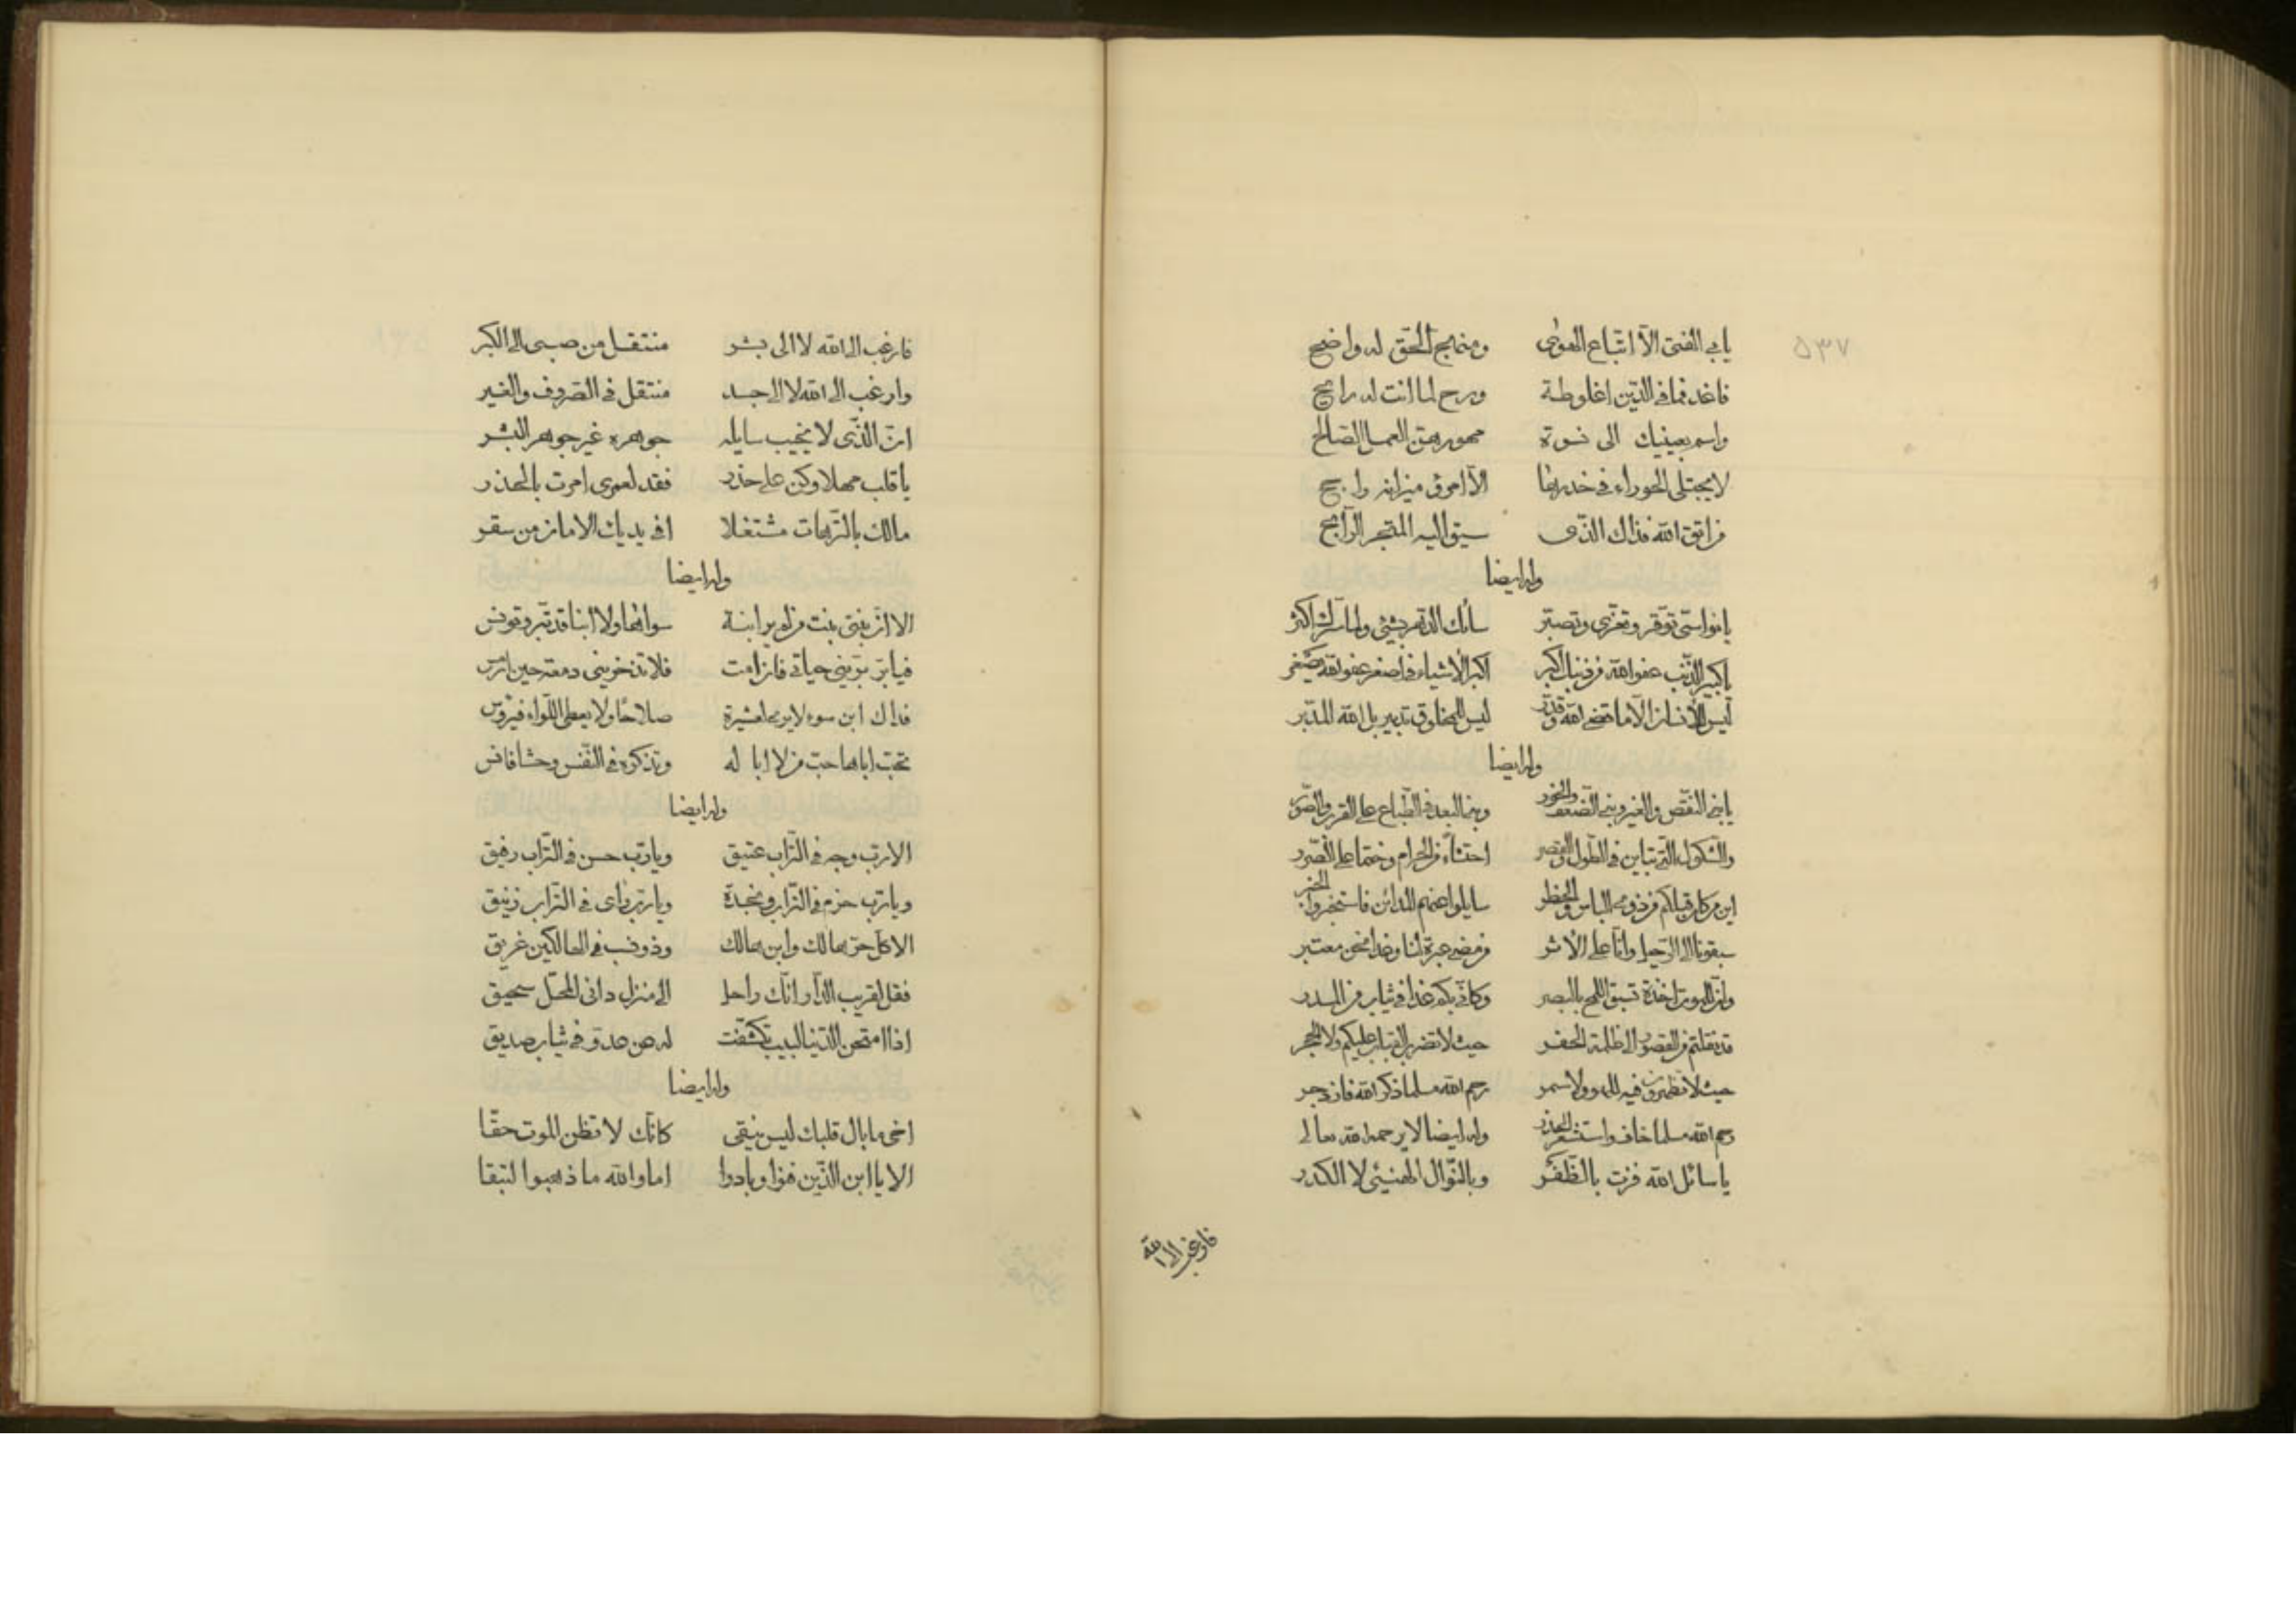 ٥٣٧
يابى الفتى الّا اتّباع الهوٰى ومنهج الحقّ له واضح
فاغد فما فى الدّين اغلوطة ورح لما انت له رايح
واسم بعينيك الى نسوة مهورهنّ العمل الصّالح
لا يجتلى الحوراء فى خدرها الّا امرؤ ميزانه راجح
من اتّقى الله فذاك الذّى سيق اليه المتّجر الرّابح
وله ايضا
يا نواسى توقّر وتعزّى وتصبّر ساءك الدّهر بشئ ولما سرّك اكثر
يا كبير الذّنب عفو الله من ذنبك اكبر اكبر الأشياء فى اصغر عفو الله يصغر
ليس للأنسان الّا ما قضى الله وقدّر ليس للمخلوق تدبير بل الله المدبّر
وله ايضا
يا بنى النّقص والغير وبنى الضّعف والخور وبنى البعد فى الطّباع على القرب والصّور
والشّكول الّتى تباين فى الطّول والقصر احتساء من الحرام وختما على الصّرر
اين من كان قبلكم من ذوى البأس والخطر سايلوا عنهم المدائن فاستخبروا الخبر
سبقونا الى الرّحيل وانّا على الأثر من مضى عبرة لنا وغدا نحن معتبر
وان للموت اخذة تسبق اللمح بالبصر وكانّى بكم غدا فى ثياب من المدر
قد نقلتم من القصور الى ظلمة الحفر حيث لا تضرب القباب عليكم ولا الحجر
حيث لا تظهرون فيه للهو ولا سمر رحم الله مسلما ذكر الله فازدجر
رحم الله مسلما خاف واستشعر الحذر وله ايضا الا يرحمه الله تعالى
يا سائل الله فزت بالظّفر وبالنّوال الهنيئى لا الكدر
فارغب الى الله
فارغب الى الله لا الى بشر منتقل من صبى الى الكبر
وارغب الى الله لا الى جسد منتقل فى الصّروف والغير
انّ الّذى لا يخيب سايله جوهره غير جوهر البشر
يا قلب مهلا وكن على حذر فقد لعمرى امرت بالحذر
مالك بالتّرهات مشتغلا افى يديك الامان من سقر
وله ايضا
الا انّ بنتى بنت من لم ير ابنة سواها ولا ابنا قد تبر وتونس
فيا برّ برّينى حياتى فان امت فلا تذخرينى دمعة حين ارمس
فداك ابن سوء لا يرىحا مشيرة صلاحا ولا يعطى اللّواء فيروّس
تحبّ اباها حبّ من لا ابا له وتذكره فى النّفس وحشا فانس
وله ايضا
الا ربّ وجه فى التّراب عتيق ويا ربّ حسن فى التّراب رفيق
ويا ربّ حزم فى التّراب ونجدة ويا ربّ راى فى التّراب زنيق
الا كلّ حىّ هالك وابن هالك وذو نسب فى الهالكين غريق
فقل لقريب الدّار انّك راحل الى منزل دانى المحلّ سحيق
اذا امتحن الدّنيا لبيب تكشّفت له عن عدوّ فى ثياب صديق
وله ايضا
اخى ما بال قلبك ليس ينقى كانّك لا تظن الموت حقّا
الا يا ابن الذّين فنوا وبادوا اما والله ما ذهبوا لتبقا